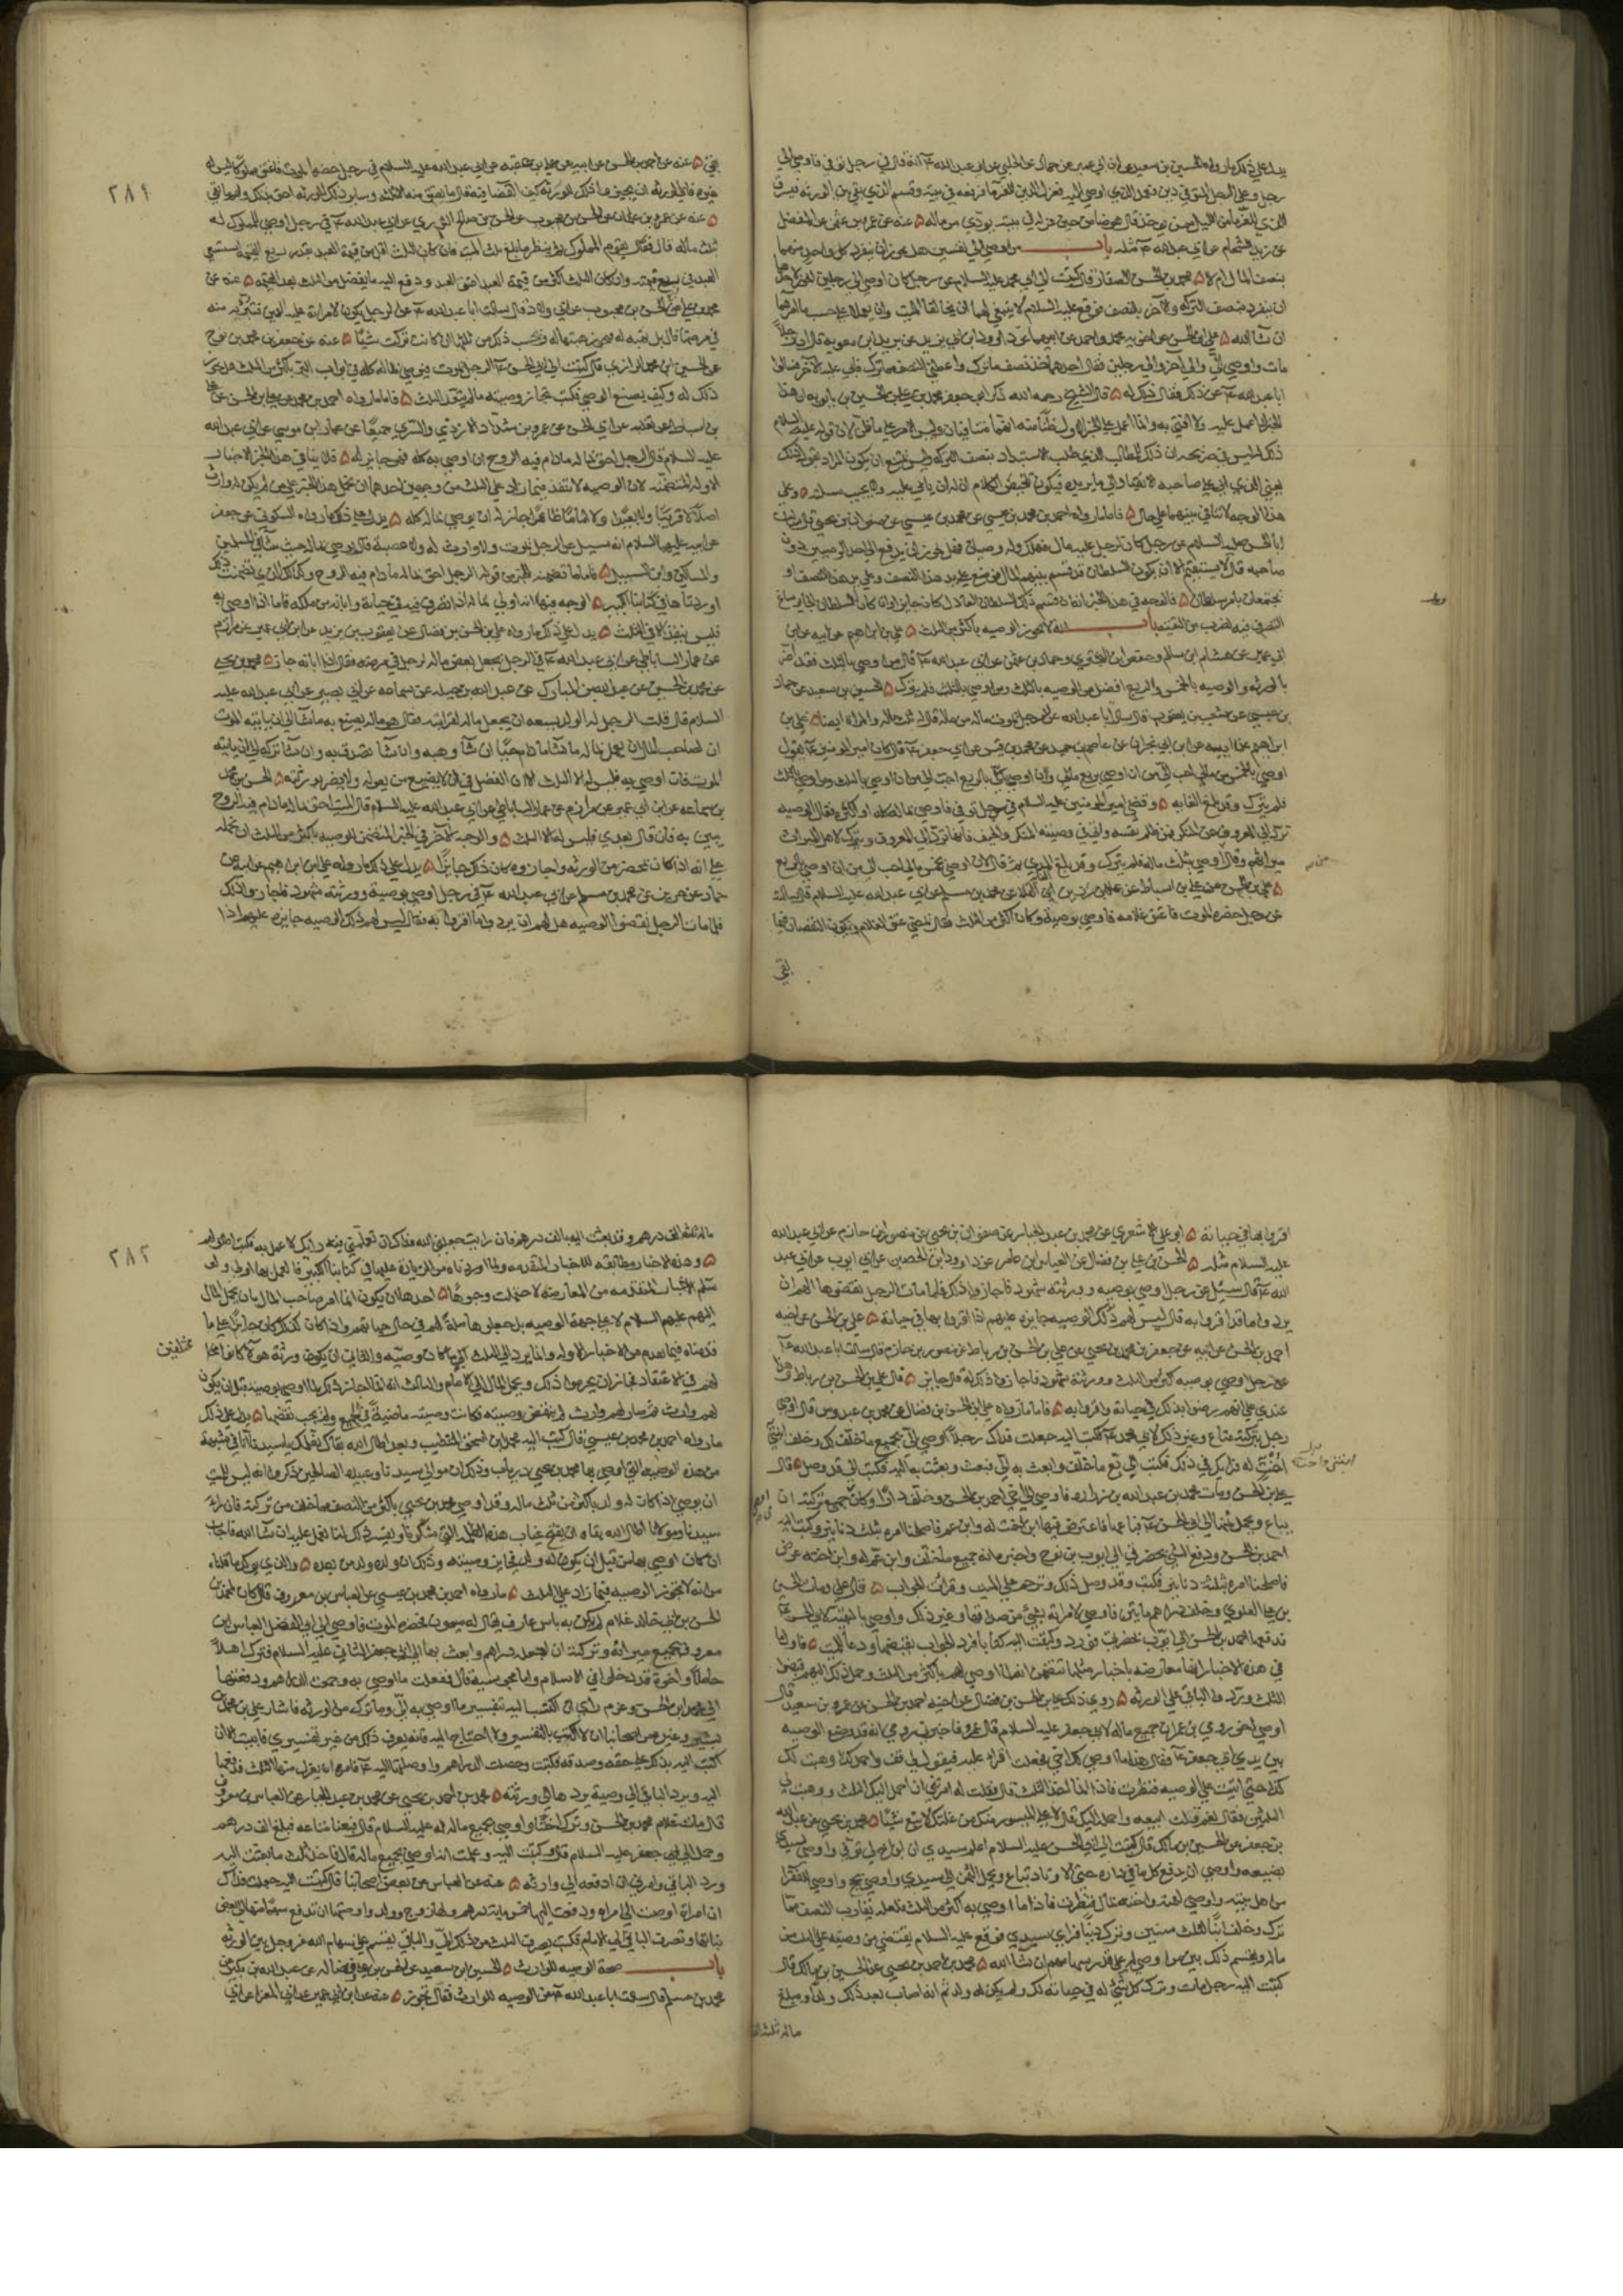 يدل على ذلك ما رواه الحسين بن سعيد عن ابن ابي عمير عن حماد عن الحلبي عن ابي عبد الله ع انه قال في رجل توفي فاوصى الى
رجل وعلى الرجل المتوفى دين فعمد الذي اوصى اليه فعزل الذي للغرما فرفعه في بيته وقسم الذي بقي بين الورثه فيسرق
الذي للغرما من الليل ممن يوخذ قال هو ضامن حين عزله في بيته يودي من ماله ۵ عنه عن عمرو بن عثمن عن المفضل
عن زيد الشحام عن ابي عبد الله ع مثله باب من اوصى الى نفسين هل يجوز ان ينفرد كل واحد منهما
بنصف المال ام لا ۵ محمد بن الحسن الصفار قال كتبت الى ابي محمد عليه السلام عن رجل كان اوصى الى رجلين
ان ينفرد بنصف التركه والاخر بالنصف فوقع عليه السلام لا ينبغي لهما ان يخالفا الميت وان يعملا على حسب ما امرهما
ان شا الله ۵ علي بن الحسن عن اخويه محمد واحمد عن ابيهما عن داود بن ابي يزيد عن بريد بن معويه قال ان رجلا
مات واوصى الي والى آخر او الى رجلين فقال احدهما خذ نصف ما ترك واعطني النصف مما ترك فابى عليه الآخر فسالوا
ابا عبد الله ع عن ذلك فقال ذلك له ۵ قال الشيخ رحمه الله ذكر ابو جعفر محمد بن علي بن الحسين بن بابويه ان هذا
الخبر لا اعمل عليه ولا افتي به وانما اعمل على الخبر الاول ظنا منه انهما متنافيان وليس الامر على ما ظن لان قوله عليه السلام
ذلك له ليس في صريحه ان ذلك للطالب الذي طلب الاستبداد بنصف التركه وليس يمتنع ان يكون المراد بقوله ذلك
يعني الذي ابى على صاحبه الانقياد الى ما يريده فيكون تلخيص الكلام ان له ان يابى عليه ولا يجيب مسئلته وعلى
هذا الوجه لا تنافي بينهما على حال ۵ فاما ما رواه احمد بن محمد بن عيسى عن محمد بن عيسى عن صفوان بن يحيى قال سالت
ابا الحسن عليه السلام عن رجل كان لرجل عليه مال فهلك وله وصيان فهل يجوز ان يدفع الى احد الوصيين دون
صاحبه قال لا يستقيم الا ان يكون السلطان قد قسم بينهم المال فوضع على يد هذا النصف وعلى يد هذا النصف او
يجتمعان بامر سلطان ۵ فالوجه في هذا الخبر انه ان قسم ذلك السلطان العادل كان جايزا وان كان السلطان الجاير ساغ
التصرف فيه لضرب من التقيه باب انه لا تجوز الوصيه باكثر من الثلث ۵ علي بن ابراهيم عن ابيه عن ابن
ابي عمير عن هشام بن سالم وحفص بن البختري وحماد بن عثمن عن ابي عبد الله ع قال من اوصى بالثلث فقد اضر
بالورثه والوصيه بالخمس والربع افضل من الوصيه بالثلث ومن اوصى بالثلث فلم يترك ۵ الحسين بن سعيد عن حماد
بن عيسى عن شعيب بن يعقوب قال سالت ابا عبد الله عن الرجل يموت ما له من ماله قال له ثلث ماله والمراه ايضا ۵ علي بن
ابراهيم عن ابيه عن ابن ابي نجران عن عاصم بن حميد عن محمد بن قيس عن ابي جعفر ع قال كان امير المومنين ع يقول
اوصي بالخمس من مالي احب الي من ان اوصي بربع مالي ولان اوصي بالربع احب الي من ان اوصي بالثلث ومن اوصى بالثلث
فلم يترك وقد بلغ الغايه ۵ وقضى امير المومنين عليه السلام في رجل توفي فاوصى بماله كله او اكثره فقال الوصيه
ترد الى المعروف عن المنكر فمن ظلم نفسه واتى في وصيته المنكر والحيف فانها ترد الى المعروف ويترك لاهل الميراث
ميراثهم وقال من اوصى بثلث ماله فلم يترك وقد بلغ المدى ثم قال لان اوصي بخمس مالي احب الي من ان اوصي بالربع
۵ علي بن الحسن عن علي بن اسباط عن علا بن رزين القلا عن محمد بن مسلم عن ابي عبد الله عليه السلام قال سالته
عن رجل حضره الموت فاعتق غلامه فاوصى بوصيه وكان اكثر من الثلث فقال يمضى عتق الغلام ويكون النقصان فيما
بقي
٢٨١
بقي ۵ عنه عن احمد بن الحسن عن ابيه عن علي بن عقبه عن ابي عبد الله عليه السلام في رجل حضره الموت فاعتق مملوكا ليس له
غيره فابى الورثه ان يجيزوا ذلك كيف القضا فيه قال ما يعتق منه الا ثلثه وساير ذلك الورثه احق بذلك ولهم ما بقي
۵ عنه عن عمرو بن عثمان عن الحسن بن محبوب عن الحسن بن صالح الثوري عن ابي عبد الله ع في رجل اوصى لمملوك له
ثلث ماله قال فقال يقوم المملوك ثم ينظر ما يبلغ ثلث الميت فان كان الثلث اقل من قيمة العبد بقدر ربع القيمه استسعي
العبد في ربع قيمته وان كان الثلث اكثر من قيمة العبد اعتق العبد ودفع اليه ما يفضل من الثلث بعد القيمه ۵ عنه عن
محمد بن علي عن الحسن بن محبوب عن ابي ولاد قال سالت ابا عبد الله ع عن الرجل يكون لامراته عليه الدين فتبرئه منه
في مرضها قال بل تهبه له فيجوز هبتها له ويحسب ذلك من ثلثها ان كانت تركت شيئا ۵ عنه عن جعفر بن محمد بن نوح
عن الحسين بن محمد الرازي قال كتبت الى ابي الحسن ع الرجل يموت فيوصي بماله كله في ابواب البر باكثر من الثلث هل يجوز
ذلك له وكيف يصنع الوصي فكتب تجاز وصيته ما لم يتعد الثلث ۵ فاما ما رواه احمد بن محمد عن علي بن الحسن عن علي
بن اسباط عن ثعلبه عن ابي الحسن عن عمرو بن شداد الازدي والسري جميعا عن عمار بن موسى عن ابي عبد الله
عليه السلام قال الرجل احق بماله ما دام فيه الروح ان اوصى به كله فهو جايز له ۵ فلا ينافي هذا الخبر الاخبار
الاوله المتضمنه لان الوصيه لا تنفذ فيما زاد على الثلث من وجهين احدهما ان نحمل هذا الخبر على من لم يكن له وارث
اصلا لا قريبا ولا بعيدا ولا اماما ظاهرا جاز له ان يوصي بماله كله ۵ يدل على ذلك ما رواه السكوني عن جعفر
عن ابيه عليهما السلام انه سئل عن الرجل يموت ولا وارث له ولا عصبة قال يوصي بماله حيث شا في المسلمين
والمساكين وابن السبيل ۵ فاما ما تضمنه الخبر من قوله الرجل احق بماله ما دام فيه الروح وكذلك الذي تضمنت
اوردناها في كتابنا الكبير ۵ الوجه فيها انه اولى بماله اذا تصرف فيه في حياته وابانه من ملكه فاما اذا اوصى به
فليس ينفذ الا في الثلث ۵ يدل على ذلك ما رواه علي بن الحسن بن فضال عن يعقوب بن يزيد عن ابن ابي عمير عن مرازم
عن عمار الساباطي عن ابي عبد الله ع في الرجل يجعل بعض ماله لرجل في مرضه فقال اذا ابانه جاز ۵ محمد بن يحيى
عن محمد بن الحسين عن عبد الله بن المبارك عن عبد الله بن جبله عن سماعه عن ابي بصير عن ابي عبد الله عليه
السلام قال قلت الرجل له الولد يسعه ان يجعل ماله لقرابته فقال هو ماله يصنع به ما شا الى ان ياتيه الموت
ان لصاحب المال ان يعمل بماله ما شا ما دام حيا ان شا وهبه وان شا تصدق به وان شا تركه الى ان ياتيه
الموت فان اوصى به فليس له الا الثلث الا ان الفضل في ان لا يضيع من يعوله ولا يضر بورثته ۵ الحسن بن محمد
بن سماعه عن ابن ابي عمير عن مرازم عن عمار الساباطي عن ابي عبد الله عليه السلام قال الميت احق بماله ما دام فيه الروح
يبين به فان قال بعدي فليس له الا الثلث ۵ والوجه الآخر في الخبر المتضمن للوصيه باكثر من الثلث ان نحمله
على انه اذا كان بمحضر من الورثه واجازوه كان ذلك جايزا ۵ يدل على ذلك ما رواه علي بن ابراهيم عن ابيه عن
حماد عن حريز عن محمد بن مسلم عن ابي عبد الله ع في رجل اوصى بوصية وورثته شهود فاجازوا ذلك
فلما مات الرجل نقضوا الوصيه هل لهم ان يردوا ما اقروا به فقال ليس لهم ذلك الوصيه جايزه عليهم اذا
اقروا بها في حياته ۵ ابو علي الاشعري عن محمد بن عبد الجبار عن صفوان بن يحيى عن منصور بن حازم عن ابي عبد الله
عليه السلام مثله ۵ الحسن بن علي بن فضال عن العباس بن عامر عن داود بن الحصين عن ابي ايوب عن ابي عبد
الله ع قال سئل عن رجل اوصى بوصيه وورثته شهود فاجازوا ذلك فلما مات الرجل نقضوها الهم ان
يردوا ما قد اقروا به قال ليس لهم ذلك الوصيه جايزه عليهم اذا اقروا بها في حياته ۵ علي بن الحسن عن اخيه
احمد بن الحسن عن ابيه عن جعفر بن محمد بن يحيى عن علي بن الحسن بن رباط عن منصور بن حازم قال سالت ابا عبد الله ع
عن رجل اوصى بوصيه اكثر من الثلث وورثته شهود فاجازوا ذلك له قال جايز ۵ قال علي بن الحسن بن رباط وهذا
عندي على انهم رضوا بذلك في حياته واقروا به ۵ فاما ما رواه علي بن الحسن بن فضال عن محمد بن عبدوس قال اوصى
رجل بتركته متاع وغير ذلك لابي محمد ع فكتبت اليه جعلت فداك رجل اوصى الي بجميع ما خلف لك وخلف ابنتي
اخت له فرايك في ذلك فكتب الي بع ما خلف وابعث به الي فبعت وبعثت به اليه فكتب الي قد وصل ۵ قال
علي بن الحسن ومات محمد بن عبد الله بن زراره فاوصى الى اخي احمد بن الحسن وخلف دارا وكان اوصى في جميع تركته ان
يباع ويحمل ثمنها الى ابي الحسن ع فباعها فاعترض فيها ابن اخت له وابن عم فاصلحنا امره بثلثه دنانير وكتب اليه
احمد بن الحسن ودفع الشي بحضرتي الى ايوب بن نوح واخبره انه جميع ما خلف وابن عم له وابن اخته عرض
فاصلحنا امره بثلثة دنانير فكتب قد وصل ذلك وترحم على الميت وقرات الجواب ۵ قال علي ومات الحسين
بن علي العلوي وخلف دراهم مايتين فاوصى لامراته بشي من صداقها وغير ذلك واوصى بالبقيه لابي الحسن ع
فدفعها احمد بن الحسن الى ايوب بحضرتي فورد وكتبت اليه كتابا فورد الجواب بقبضها ودعا للميت ۵ فاول ما
في هذه الاخبار انها معارضه باخبار مثلها تتضمن انه لما اوصي لهم باكثر من الثلث وحمل ذلك اليهم قبضوا
الثلث وردوا الباقي على الورثه ۵ روى ذلك علي بن الحسن بن فضال عن اخيه احمد بن الحسن عن عمرو بن سعيد قال
اوصى اخو رومي بن عمران جميع ماله لابي جعفر عليه السلام قال عمرو فاخبرني رومي انه قد وضع الوصيه
بين يدي ابي جعفر ع فقال هذا ما اوصى لك اخي فجعلت اقرا عليه فيقول لي قف واحمل كذا ووهبت لك
كذا حتى اتيت على الوصيه فنظرت فاذا انما اخذ الثلث قال فقلت له امرتني ان احمل اليك الثلث ووهبت لي
الثلثين فقال نعم قلت ابيعه واحمله اليك قال لا على الميسور منك من غلتك لا تبع شيئا ۵ محمد بن يحيى عن عبد الله
بن جعفر عن الحسين بن مالك قال كتبت الى ابي الحسن عليه السلام اعلم سيدي ان ابن اخ لي توفي واوصى لسيدي
بضيعه واوصى ان يدفع كل ما في داره حتى الاوتاد تباع ويحمل الثمن الى سيدي واوصى بحج واوصى للفقرا
من اهل بيته واوصى لعمته واخته بمال فنظرت فاذا ما اوصى به اكثر من الثلث ولعله يقارب النصف مما
ترك وخلف ابنا لثلث سنين وترك دينا فراى سيدي فوقع عليه السلام يقتصر من وصيته على الثلث من
ماله ويقسم ذلك بين من اوصى له على قدر سهامهم ان شا الله ۵ محمد بن احمد بن يحيى عن الحسين بن مالك قال
كتبت اليه رجل مات وترك كل شي له في حياته لك ولم يكن له ولد ثم انه اصاب بعد ذلك ولدا ومبلغ
ماله ثلثه
٢٨٢
ماله ثلثه الف درهم وقد بعثت اليه بالف درهم فان رايت جعلني الله فداك ان تعلمني فيه رايك لاعمل به فكتب اطلق لهم
۵ وهذه الاخبار مطابقه للاخبار المتقدمه ولما اوردناه من الزيادة عليها في كتابنا الكبير فالعمل بها اولى ولو
سلم الاخبار المتقدمه من المعارضه لاحتملت وجوها ۵ احدها ان يكون انما امر صاحب المال بان يحمل المال
اليهم عليهم السلام لا على جهة الوصيه بل جعلوها صلة لهم في حال حياتهم واذا كان كذلك كان جايزا على ما
قدمناه فيما تقدم من الاخبار الاوله وانما يرد الى الثلث ما كان وصيه والثاني ان يكون ورثة هولا كانوا مخالفين
لهم في الاعتقاد فجاز ان يحرموا ذلك ويحمل المال الى الامام والثالث انه انما اجاز ذلك لما اوصوا بوصيه قبل ان يكون
لهم وارث ثم صار لهم وارث لم ينقض وصيته فكانت وصيته ماضية في الجميع ولم يجب نقضها ۵ يدل على ذلك
ما رواه احمد بن محمد بن عيسى قال كتب اليه محمد بن اسحق المتطبب وبعد اطال الله بقاك نعلمك يا سيدنا انا في شبهة
من هذه الوصيه التي اوصى بها محمد بن يحيى درياب وذلك ان موالي سيدنا وعبيده الصالحين ذكروا انه ليس للميت
ان يوصي اذا كان له ولد باكثر من ثلث ماله وقد اوصى محمد بن يحيى باكثر من النصف مما خلف من تركته فان راى
سيدنا ومولانا اطال الله بقاه ان يفتح غياب هذه الظلمه التي شكونا ويفسر ذلك لنا نعمل عليه ان شا الله فاجاب
ان كان اوصى بها من قبل ان يكون له ولد فجايز وصيته وذلك ان ولده ولد من بعده ۵ والذي يوكد ما قلناه
من انه لا تجوز الوصيه فيما زاد على الثلث ۵ ما رواه احمد بن محمد بن عيسى عن العباس بن معروف قال كان لمحمد بن
الحسن بن ابي خالد غلام لم يكن به باس عارف يقال له ميمون فحضره الموت فاوصى الى ابي الفضل العباس بن
معروف بجميع ميراثه وتركته ان اجعله دراهم وابعث بها الى ابي جعفر الثاني عليه السلام فترك اهلا
حاملا واخوة قد دخلوا في الاسلام واما مجوسية قال ففعلت ما اوصى به وجمعت الدراهم ودفعتها
الى محمد بن الحسن وعزم راي ان اكتب اليه تفسير ما اوصى به الي وما ترك من الورثه فاشار علي محمد بن
بشير وغيره من اصحابنا ان لا اكتب بالتفسير ولا احتاج اليه فانه يعرف ذلك من غير تفسيري فابيت الا ان
اكتب اليه بذلك على حقه وصدقه فكتبت وحصلت الدراهم واوصلتها اليه ع فامره ان يعزل منها الثلث فدفعها
اليه ويرد الباقي الى وصيه يردها الى ورثته ۵ محمد بن احمد بن يحيى عن محمد بن عبد الجبار عن العباس بن معروف
قال مات غلام محمد بن الحسن وترك اختا واوصى بجميع ماله له عليه السلام قال فبعنا متاعه فبلغ الف درهم
وحمل الى ابي جعفر عليه السلام قال وكتبت اليه واعلمته انه اوصى بجميع ماله قال فاخذ ثلث ما بعثت اليه
ورد الباقي وامرني ان ادفعه الى وارثه ۵ عنه عن العباس عن بعض اصحابنا قال كتبت اليه جعلت فداك
ان امراة اوصت الى امراه ودفعت اليها خمس مايه درهم ولها زوج وولد واوصتها ان تدفع سهما منها الى بعض
بناتها وتصرف الباقي الى الامام فكتب يصرف الثلث من ذلك الي والباقي يقسم على سهام الله عز وجل بين الورثه
باب صحة الوصيه للوارث ۵ الحسين بن سعيد عن الحسن بن علي بن فضال عن عبد الله بن بكير عن
محمد بن مسلم قال سالت ابا عبد الله ع عن الوصيه للوارث فقال تجوز ۵ عنه عن ابن ابي عمير عن ابي المغرا عن ابي
مخالفين